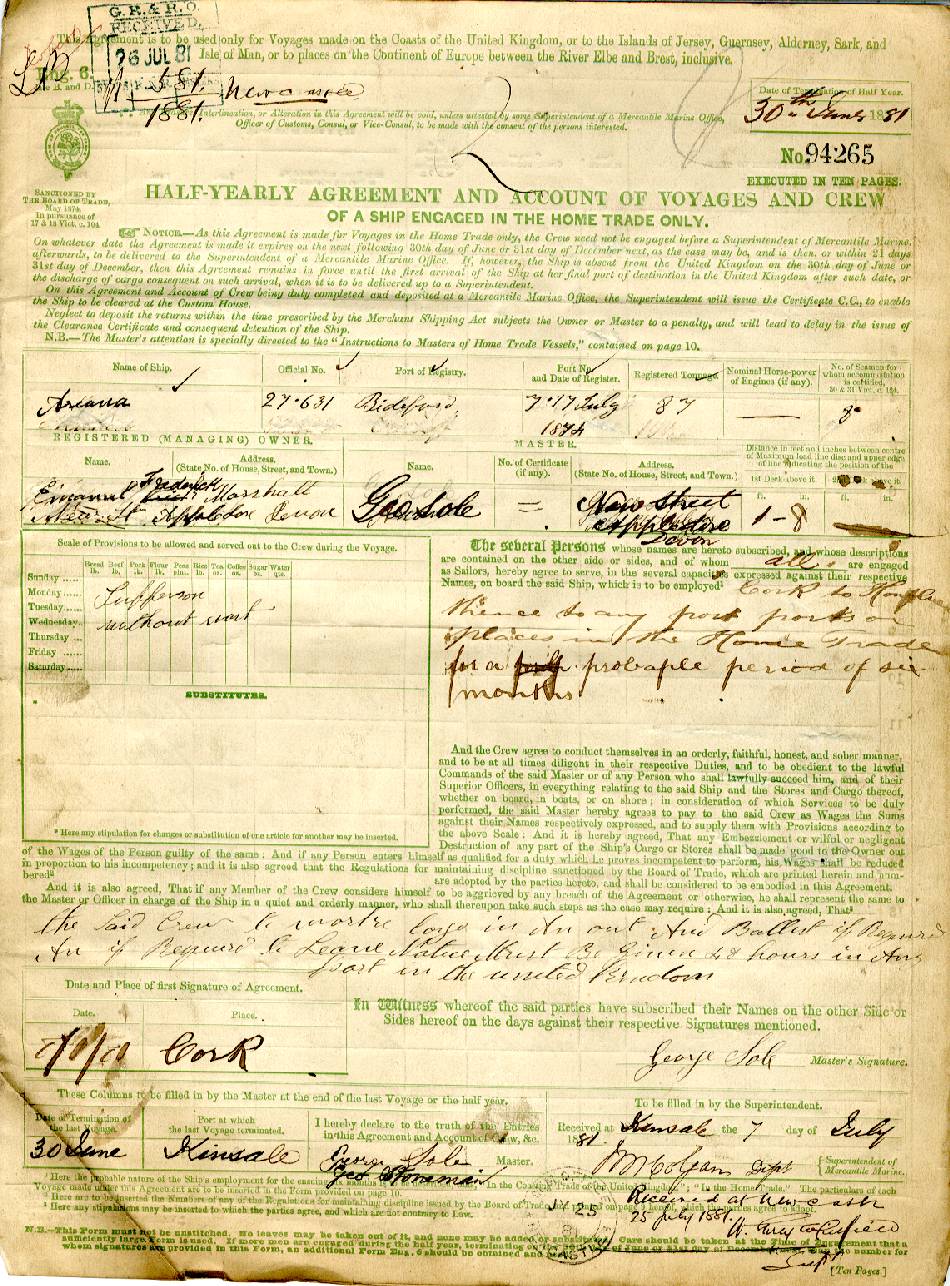 G.R. & R.O.
RECEIVED,
26 JUL 81
This Agreement is to be used only for Voyages made on the Coasts of the United Kingdom, or to the Islands of Jersey, Guernsey, Alderney, Sark, and
Isle of Man, or to places on the Continent of Europe between the River Elbe and Brest, inclusive.
Eng. 6.
1881.
Interlineation, or Alteration in this Agreement will be void, unless attested by some Superintendent of a Mercantile Marine Office,
Officer of Customs, Consul, or Vice-Consul, to be made with the consent of the persons interested.
Date of Termination of Half Year.
30th June 1881
No. 94265
EXECUTED IN TEN PAGES.
SANCTIONED BY
THE BOARD OF TRADE,
May 1874,
In pursuance of
17 & 18 Vict. c. 104.
HALF-YEARLY AGREEMENT AND ACCOUNT OF VOYAGES AND CREW
OF A SHIP ENGAGED IN THE HOME TRADE ONLY.
NOTICE.—As this Agreement is made for Voyages in the Home Trade only, the Crew need not be engaged before a Superintendent of Mercantile Marine.
On whatever date the Agreement is made it expires on the next following 30th day of June or 31st day of December next, as the case may be, and is then, or within 21 days
afterwards, to be delivered to the Superintendent of a Mercantile Marine Office. If, however, the Ship is absent from the United Kingdom on the 30th day of June or
31st day of December, then this Agreement remains in force until the first arrival of the Ship at her final port of destination in the United Kingdom after such date, or
the discharge of cargo consequent on such arrival, when it is to be delivered up to a Superintendent.
On this Agreement and Account of Crew being duly completed and deposited at a Mercantile Marine Office, the Superintendent will issue the Certificate C.C., to enable
the Ship to be cleared at the Custom House.
Neglect to deposit the returns within the time prescribed by the Merchant Shipping Act subjects the Owner or Master to a penalty, and will lead to delay in the issue of
the Clearance Certificate and consequent detention of the Ship.
N.B.—The Master's attention is specially directed to the "Instructions to Masters of Home Trade Vessels," contained on page 10.
Name of Ship. Official No. Port of Registry. Port No. and Date of Register. Registered Tonnage. Nominal Horse-power of Engines (if any). No. of Seamen for whom accommodation is certified, 30 & 31 Vict. c. 124.
Ariana 27.631 Bideford 7.17 July 1874 87 — 8
REGISTERED (MANAGING) OWNER. MASTER.
Name. Address. (State No. of House, Street, and Town.) Name. No. of Certificate (if any). Address. (State No. of House, Street, and Town.)
1st Deck above it. ft. in. ft. in.
Emanuel Frederick Marshall
New St Appledore Devon
Geo Sole = New Street Appledore Devon 1-8
Scale of Provisions to be allowed and served out to the Crew during the Voyage.
Bread lb. Beef lb. Pork lb. Flour lb. Peas pin. Rice lb. Tea oz. Coffee oz. Sugar oz. Water qts.
Sunday .....
Monday .....
Tuesday .....
Wednesday .....
Thursday .....
Friday .....
Saturday .....
without
SUBSTITUTES.
* Here any stipulation for changes or substitution of one article for another may be inserted.
The several Persons whose names are hereto subscribed, and whose descriptions
are contained on the other side or sides, and of whom all are engaged
as Sailors, hereby agree to serve, in the several capacities expressed against their respective
Names, on board the said Ship, which is to be employed Cork to
thence to any port ports or
places in the Home Trade
for a probaple period of six
months
And the Crew agree to conduct themselves in an orderly, faithful, honest, and sober manner,
and to be at all times diligent in their respective Duties, and to be obedient to the lawful
Commands of the said Master or of any Person who shall lawfully succeed him, and of their
Superior Officers, in everything relating to the said Ship and the Stores and Cargo thereof,
whether on board, in boats, or on shore; in consideration of which Services to be duly
performed, the said Master hereby agrees to pay to the said Crew as Wages the Sums
against their Names respectively expressed, and to supply them with Provisions according to
the above Scale: And it is hereby agreed, That any Embezzlement or wilful or negligent
Destruction of any part of the Ship's Cargo or Stores shall be made good to the Owner out
of the Wages of the Person guilty of the same: And if any Person enters himself as qualified for a duty which he proves incompetent to perform, his Wages shall be reduced
in proportion to his incompetency; and it is also agreed that the Regulations for maintaining discipline sanctioned by the Board of Trade, which are printed herein and num-
bered are adopted by the parties hereto, and shall be considered to be embodied in this Agreement.
And it is also agreed, That if any Member of the Crew considers himself to be aggrieved by any breach of the Agreement or otherwise, he shall represent the same to
the Master or Officer in charge of the Ship in a quiet and orderly manner, who shall thereupon take such steps as the case may require: And it is also agreed, That
the Said Crew to in An out And Ballist if Required
An if Required to Leave Notice Must Be Given 48 hours in Any
port in the united
Date and Place of first Signature of Agreement.
Date. Place.
Cork
In Witness whereof the said parties have subscribed their Names on the other Side or
Sides hereof on the days against their respective Signatures mentioned.
George Sole Master's Signature.
These Columns to be filled in by the Master at the end of the last Voyage or the half year.
To be filled in by the Superintendent.
Date of Termination of the last Voyage. Port at which the last Voyage terminated.
30 June Kinsale
I hereby declare to the truth of the Entries
in this Agreement and Account of Crew, &c.
George Sole Master.
Received at Kinsale the 7 day of July
1881.
Superintendent of Mercantile Marine.
Received at Newcastle
25 July 1881.
[Ten Pages.]